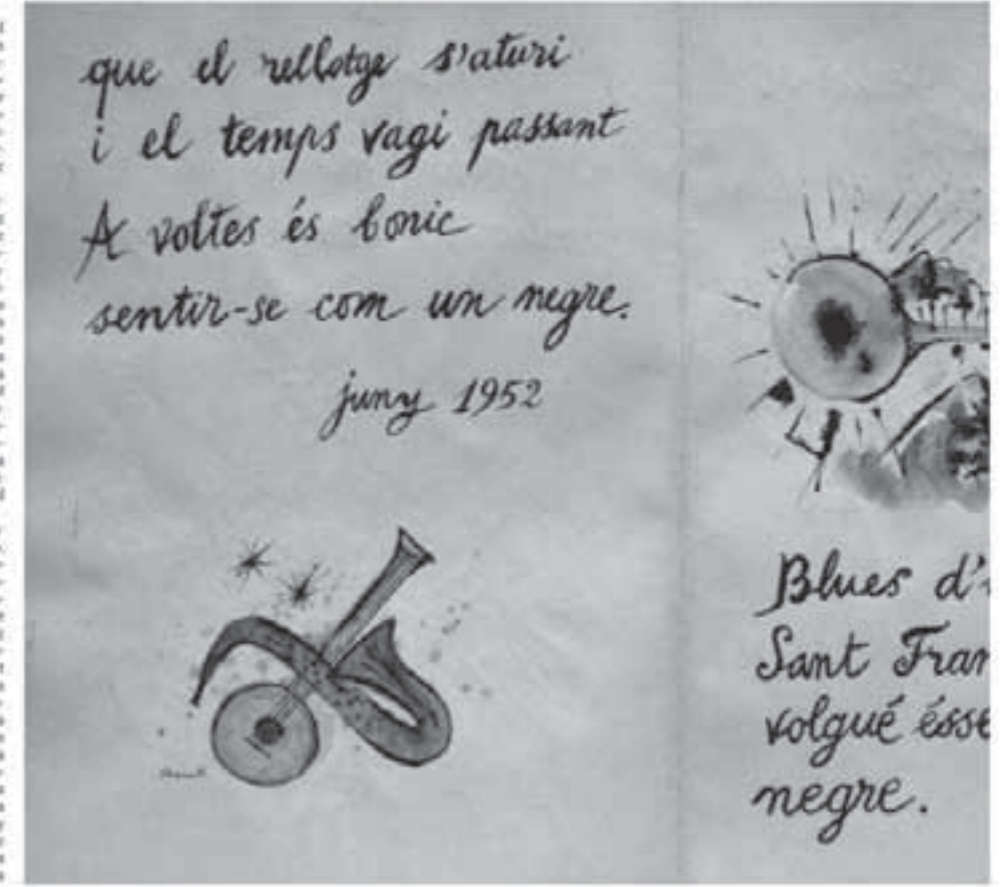 que el rellotge s'aturi
i el temps vagi passant
A voltes és bonic
sentir-se com un negre.
juny 1952
Blues d'
Sant Fran
volgué ésse
negre.